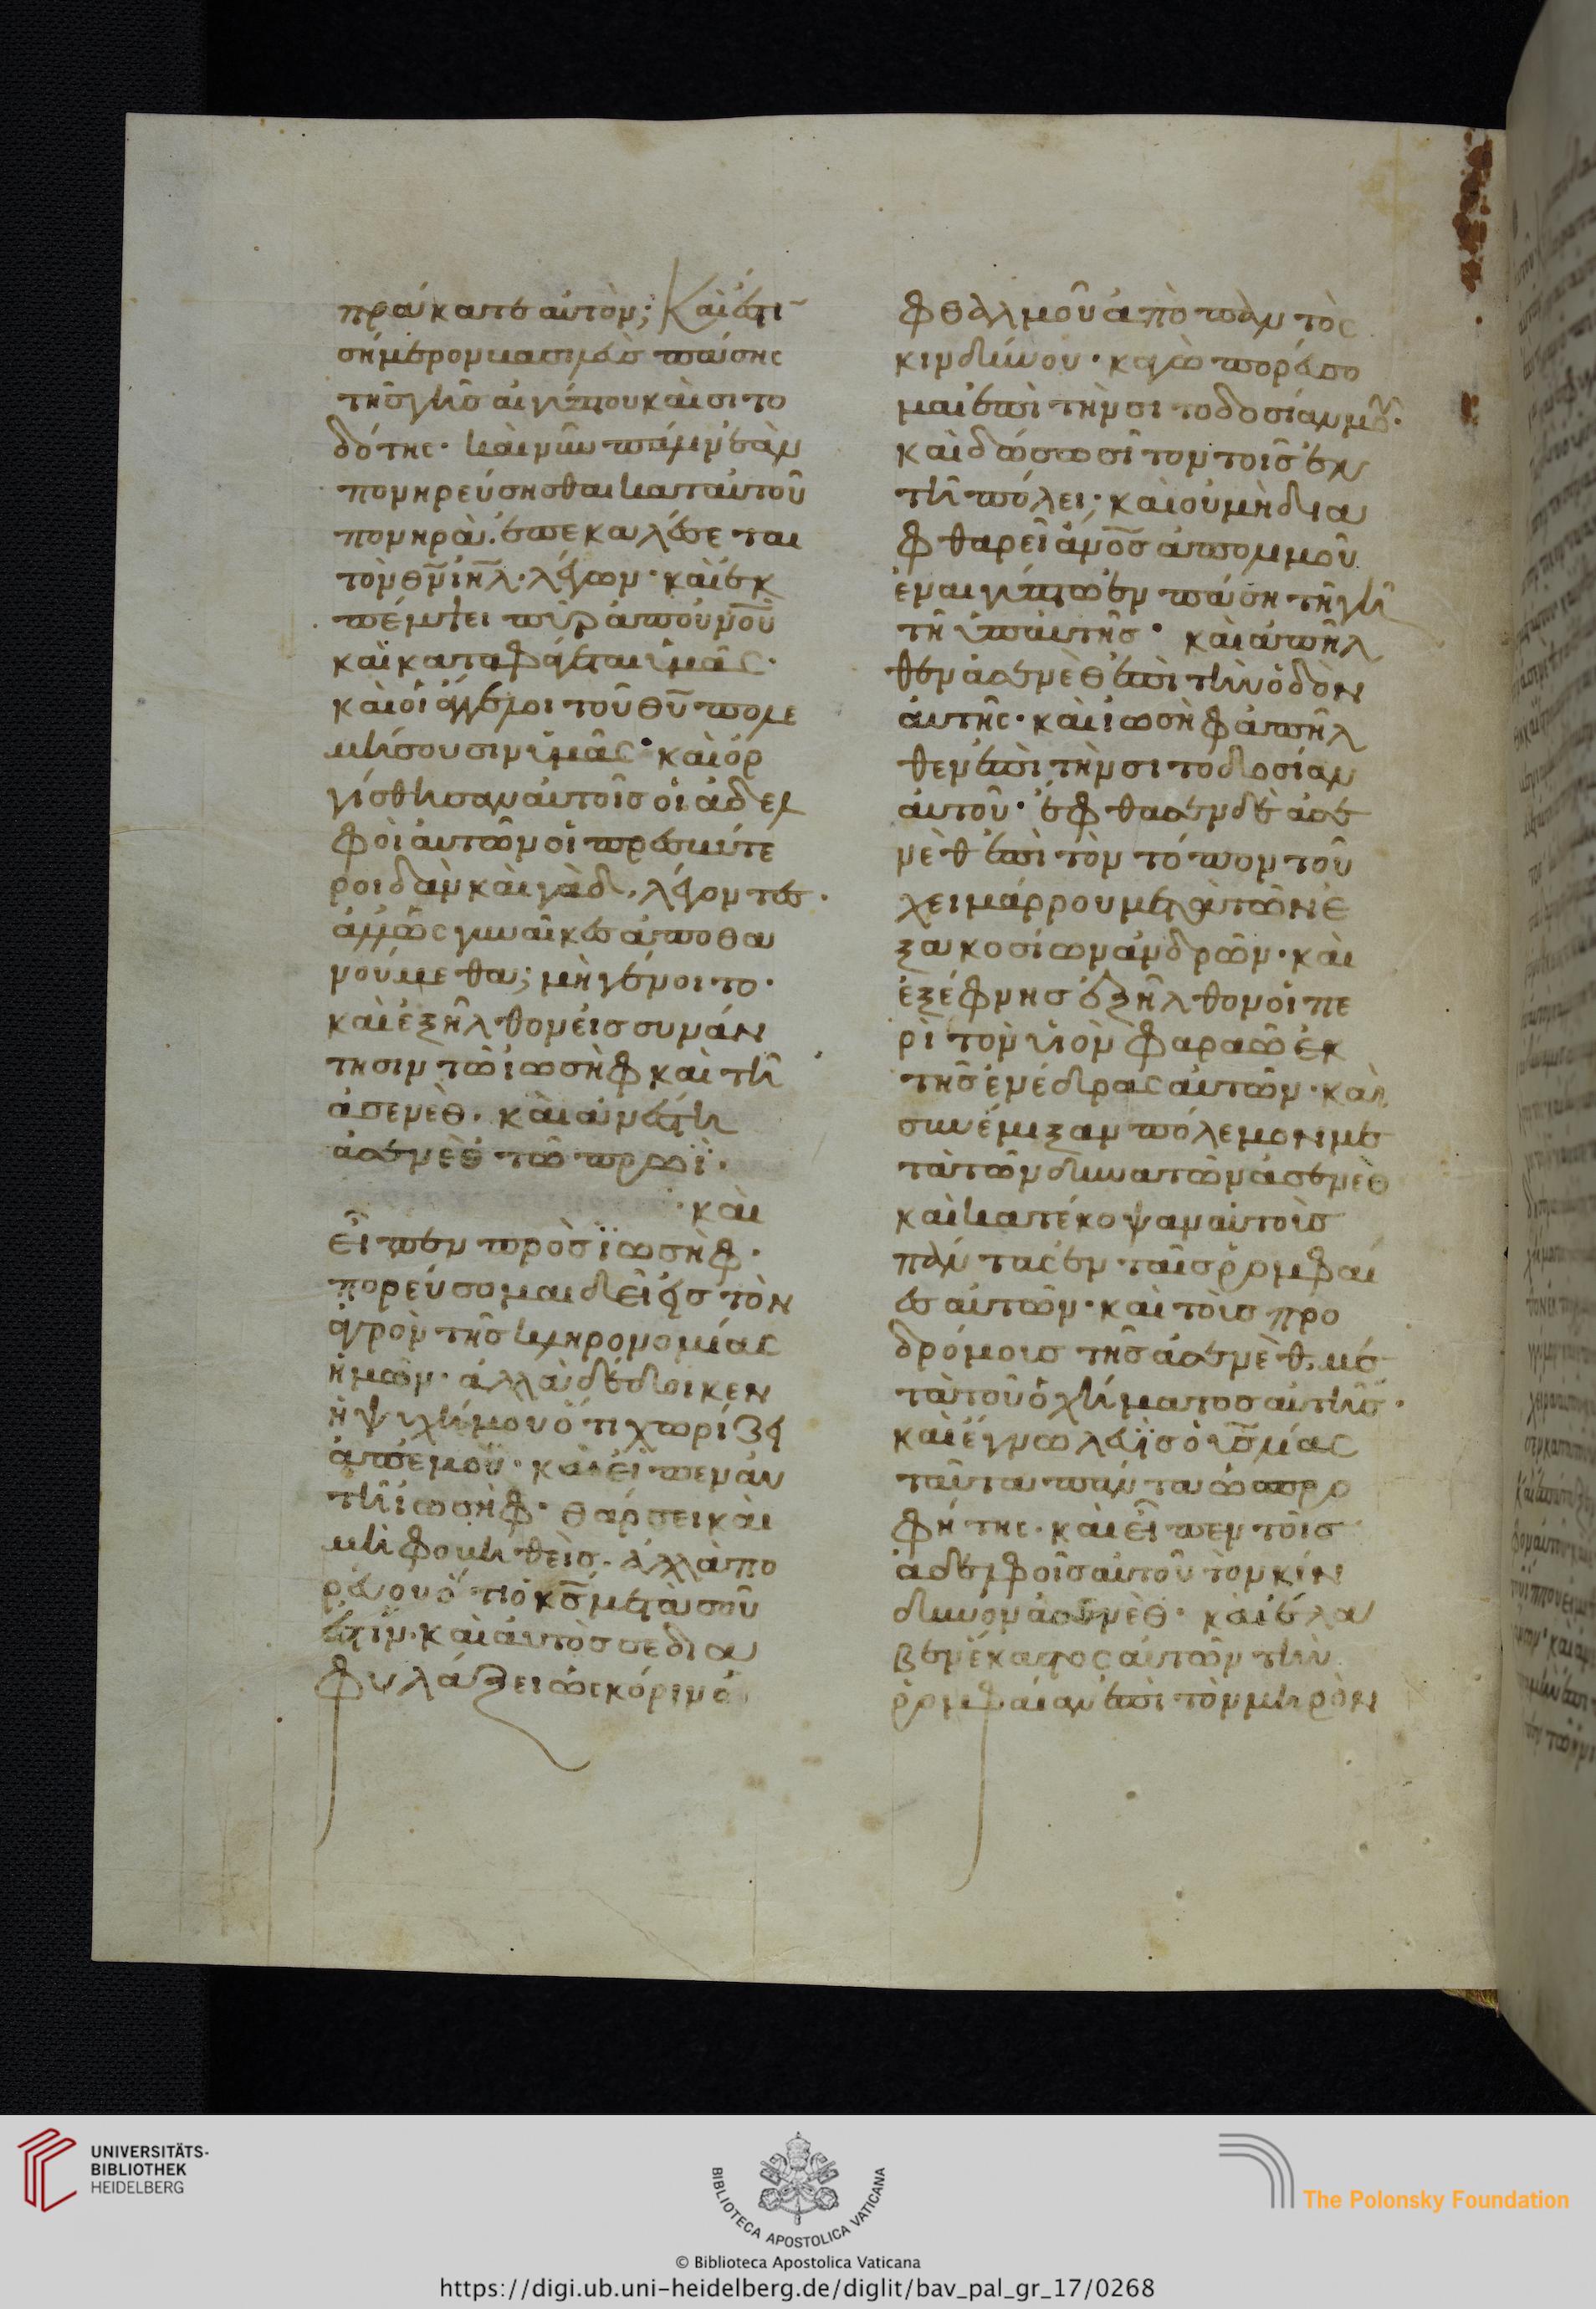 πράκατε αὐτὸν; Καὶ ἔστι
σήμερον βασιλεὺς πάσης
τῆς γῆς αἰγύπτου καὶ σιτο
δότης· καὶ νῦν πάλιν ἐὰν
πονηρεύσησθαι κατ αυτοῦ
πονηρὰ. ἐπικαλέσεται
τὸν θν ιηλ· λέγων· καὶ ἐκ
πέμψει πῦρ ἀπ οὐνοῦ
καὶ καταφάγεται ὑμᾶς·
καὶ οἱ ἄγγελοι τοῦ θυ πολε
μήσουσιν ὑμᾶς· καὶ ὀρ
γίσθησαν αυτοῖς οἱ ἀδελ
φοὶ αὐτῶν οἱ πρεσβύτε
ροι δὰν καὶ γὰδ. λέγοντες·
ἀλλ ὡς γυναῖκες ἀποθα
νούμεθα; μὴ γένοιτο·
καὶ ἐξῆλθον εἰς συνάν
τησιν τῶ ἰωσὴφ καὶ τῆ
ἀσενὲθ. καὶ ἀνέστη
ἀσενὲθ τῶ πρωῒ.
· καὶ
εἶπεν πρὸς ἰωσὴφ·
πορεύσομαι δὴ εἰς τὸν
ἀγρὸν τῆς κληρονομίας
ἡμῶν· ἀλλὰ δέδοικεν
ἡ ψυχή μου ὅτι χωρίζῃ
ἀπ ἐμοῦ· καὶ εἶπεν αυ
τῆ ἰωσὴφ· θάρσει καὶ
μὴ φοβηθεὶς. ἀλλὰ πο
ρεύου ὅτι ὁ κς μετὰ σοῦ
ἐστιν· καὶ αὐτὸς σε δια
φυλάξει ὡς κόριν ὀ
φθαλμοῦ ἀπὸ παντὸς
κινδύνου· κἀγὼ πορεύσο
μαι ἐπὶ τὴν σιτοδοσίαν μου·
καὶ δώσω σῖτον τοῖς ἐν
τῆ πόλει; καὶ οὐ μὴ δια
φθαρεῖ ἄνος ἀπο λιμοῦ
ἐν αἰγύπτω ἐν πάση τῆ γῆ
τῆ ὑπ αυτῆς· καὶ ἀπῆλ
θεν ἀσενὲθ ἐπὶ τὴν ὁδὸν
αὐτῆς· καὶ ἰωσὴφ ἀπῆλ
θεν ἐπὶ τὴν σιτοδοσίαν
αὐτοῦ· ἔφθασεν δὲ ἀσε
νὲθ ἐπὶ τὸν τόπον τοῦ
χειμάρρου μετὰ τῶν ἑ
ξακοσίων ἀνδρῶν· καὶ
ἐξέφνης ἐξῆλθον οἱ πε
ρὶ τὸν υἱὸν φαραὼ ἐκ
τῆς ἐνέδρας αὐτῶν· καὶ
συνέμιξαν πόλεμον με
τὰ τῶν δυνατῶν ἀσενὲθ
καὶ κατέκοψαν αὐτοὺς
πάντας ἐν ταῖς ῥομφαί
ες αὐτῶν· καὶ τοὺς προ
δρόμους τῆς ἀσενὲθ. με
τὰ τοῦ ὀχήματος αὐτῆς·
καὶ ἔγνω λευῒς ὁ υἱὸς λίας
ταῦτα πάντα ὡς προ
φήτης· καὶ εἶπεν τοῖς
ἀδελφοῖς αὐτοῦ τὸν κίν
δυνον ἀσενὲθ· καὶ ἔλα
βεν ἕκαστος αὐτῶν τὴν
ῥομφαίαν ἐπὶ τὸν μηρὸν
UNIVERSITÄTS-
BIBLIOTHEK
HEIDELBERG
BIBLIOTECA APOSTOLICA VATICANA
The Polonsky Foundation
© Biblioteca Apostolica Vaticana
https://digi.ub.uni-heidelberg.de/diglit/bav_pal_gr_17/0268